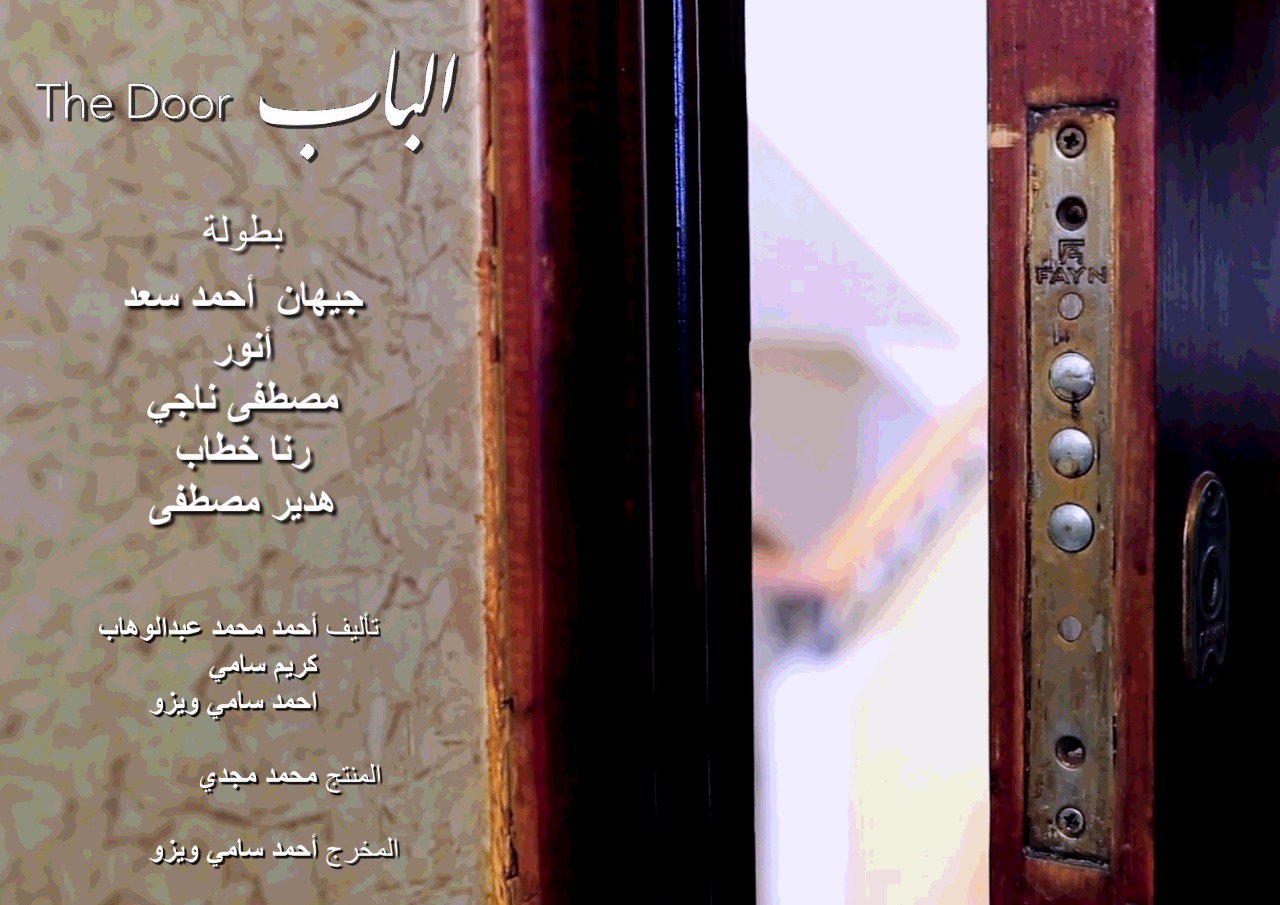 The Door الباب
بطولة
جيهان أحمد سعد
أنور
مصطفى ناجي
رنا خطاب
هدير مصطفى
تأليف أحمد محمد عبدالوهاب
كريم سامي
احمد سامي ويزو
المنتج محمد مجدي
المخرج أحمد سامي ويزو
FAYN